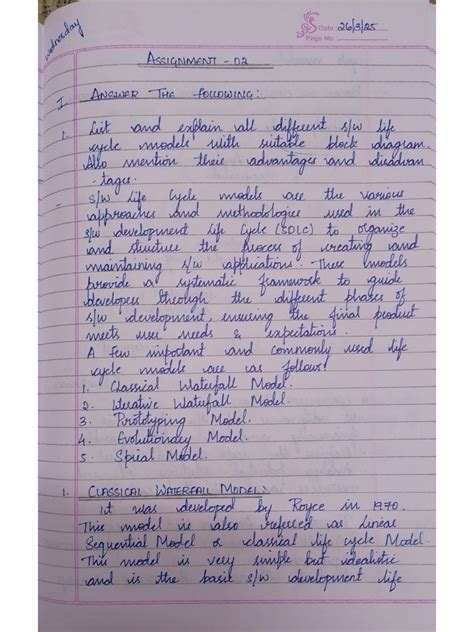 Wednesday
Date : 26/3/25
Page No. :
ASSIGNMENT - 02
I. ANSWER THE FOLLOWING :
1. List and explain all different s/w life
cycle models with suitable block diagram.
Also mention their advantages and disadvan
- tages.
- S/w Life Cycle models are the various
approaches and methodologies used in the
s/w development life Cycle (SDLC) to organize
and structure the process of creating and
maintaining s/w applications. These models
provide a systematic framework to guide
developers through the different phases of
s/w development, ensuring the final product
meets user needs & expectations.
A Few important and commonly used life
cycle models are as follows
1. Classical Waterfall Model.
2. Iterative Waterfall Model.
3. Prototyping Model.
4. Evolutionary Model.
5. Spiral Model.
1. CLASSICAL WATERFALL MODEL :
It was developed by Royce in 1970.
This model is also referred as Linear
Sequential Model or classical life cycle Model.
This model is very simple but idealistic
and is the basic s/w development life